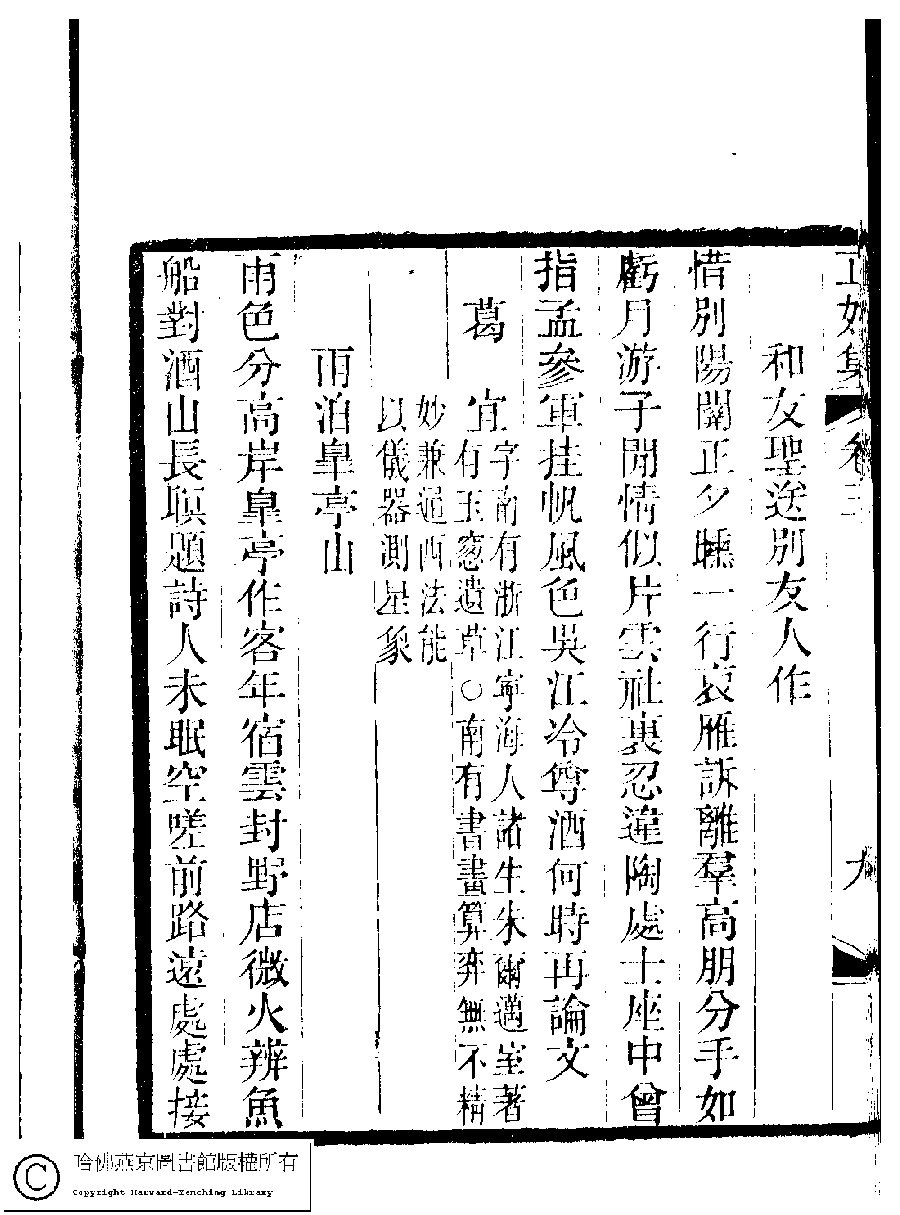 正始集 卷三 九
和友聖送別友人作
惜別陽關正夕曛一行哀雁訴離羣高朋分手如
虧月游子閒情似片雲社裏忍違陶處士座中曾
指孟參軍挂帆風色吳江冷尊酒何時再論文
葛 宜字南有浙江寧海人諸生朱爾邁室著
有玉窓遺草○南有書畫算弈無不精
妙兼通西法能
以儀器測星象
雨泊臯亭山
雨色分高岸臯亭作客年宿雲封野店微火辨魚
船對酒山長暝題詩人未眠空嗟前路遠處處接
哈佛燕京圖書館版權所有
Copyright Harvard-Yenching Library